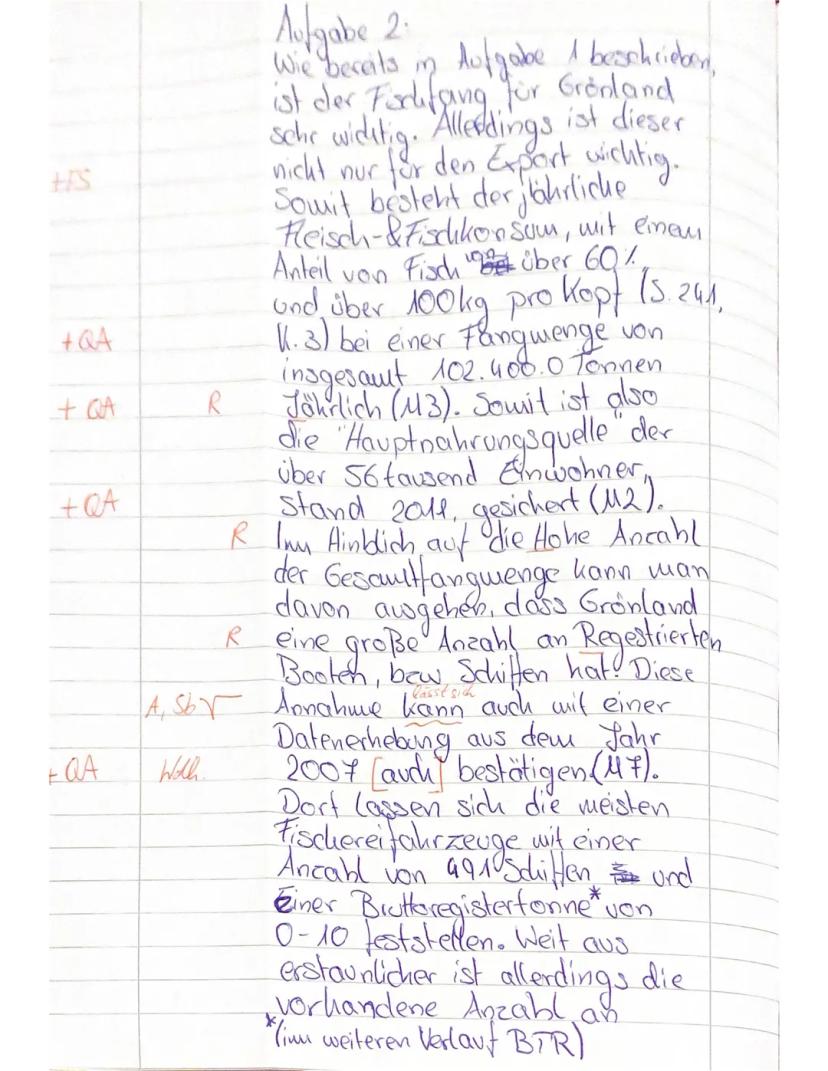 Aufgabe 2:
Wie bereits in Aufgabe 1 beschrieben,
ist der Fischfang für Grönland
sehr wichtig. Allerdings ist dieser
nicht nur für den Export wichtig.
+FS Somit besteht der jährliche
Fleisch-&Fischkonsum, mit einem
Anteil von Fisch von über 60%
und über 100kg pro Kopf (S. 241,
+QA K.3) bei einer Fangmenge von
insgesamt 102.400.0 Tonnen
+ QA R Jährlich (M3). Somit ist also
die "Hauptnahrungsquelle" der
über 56 tausend Einwohner,
+QA Stand 2011, gesichert (M2).
R Im Hinblick auf die Hohe Anzahl
der Gesamtfangmenge kann man
davon ausgehen, dass Grönland
R eine große Anzahl an Regestrierten
Booten, bzw Schiffen hat. Diese
lässt sich
A, Sb √ Annahme kann auch mit einer
Datenerhebung aus dem Jahr
+QA Wdh. 2007 [auch] bestätigen (M7).
Dort lassen sich die meisten
Fischereifahrzeuge mit einer
Anzahl von 491 Schiffen und
Einer Bruttoregistertonne* von
0-10 feststellen. Weit aus
erstaunlicher ist allerdings die
vorhandene Anzahl an
*(im weiteren Verlauf BTR)